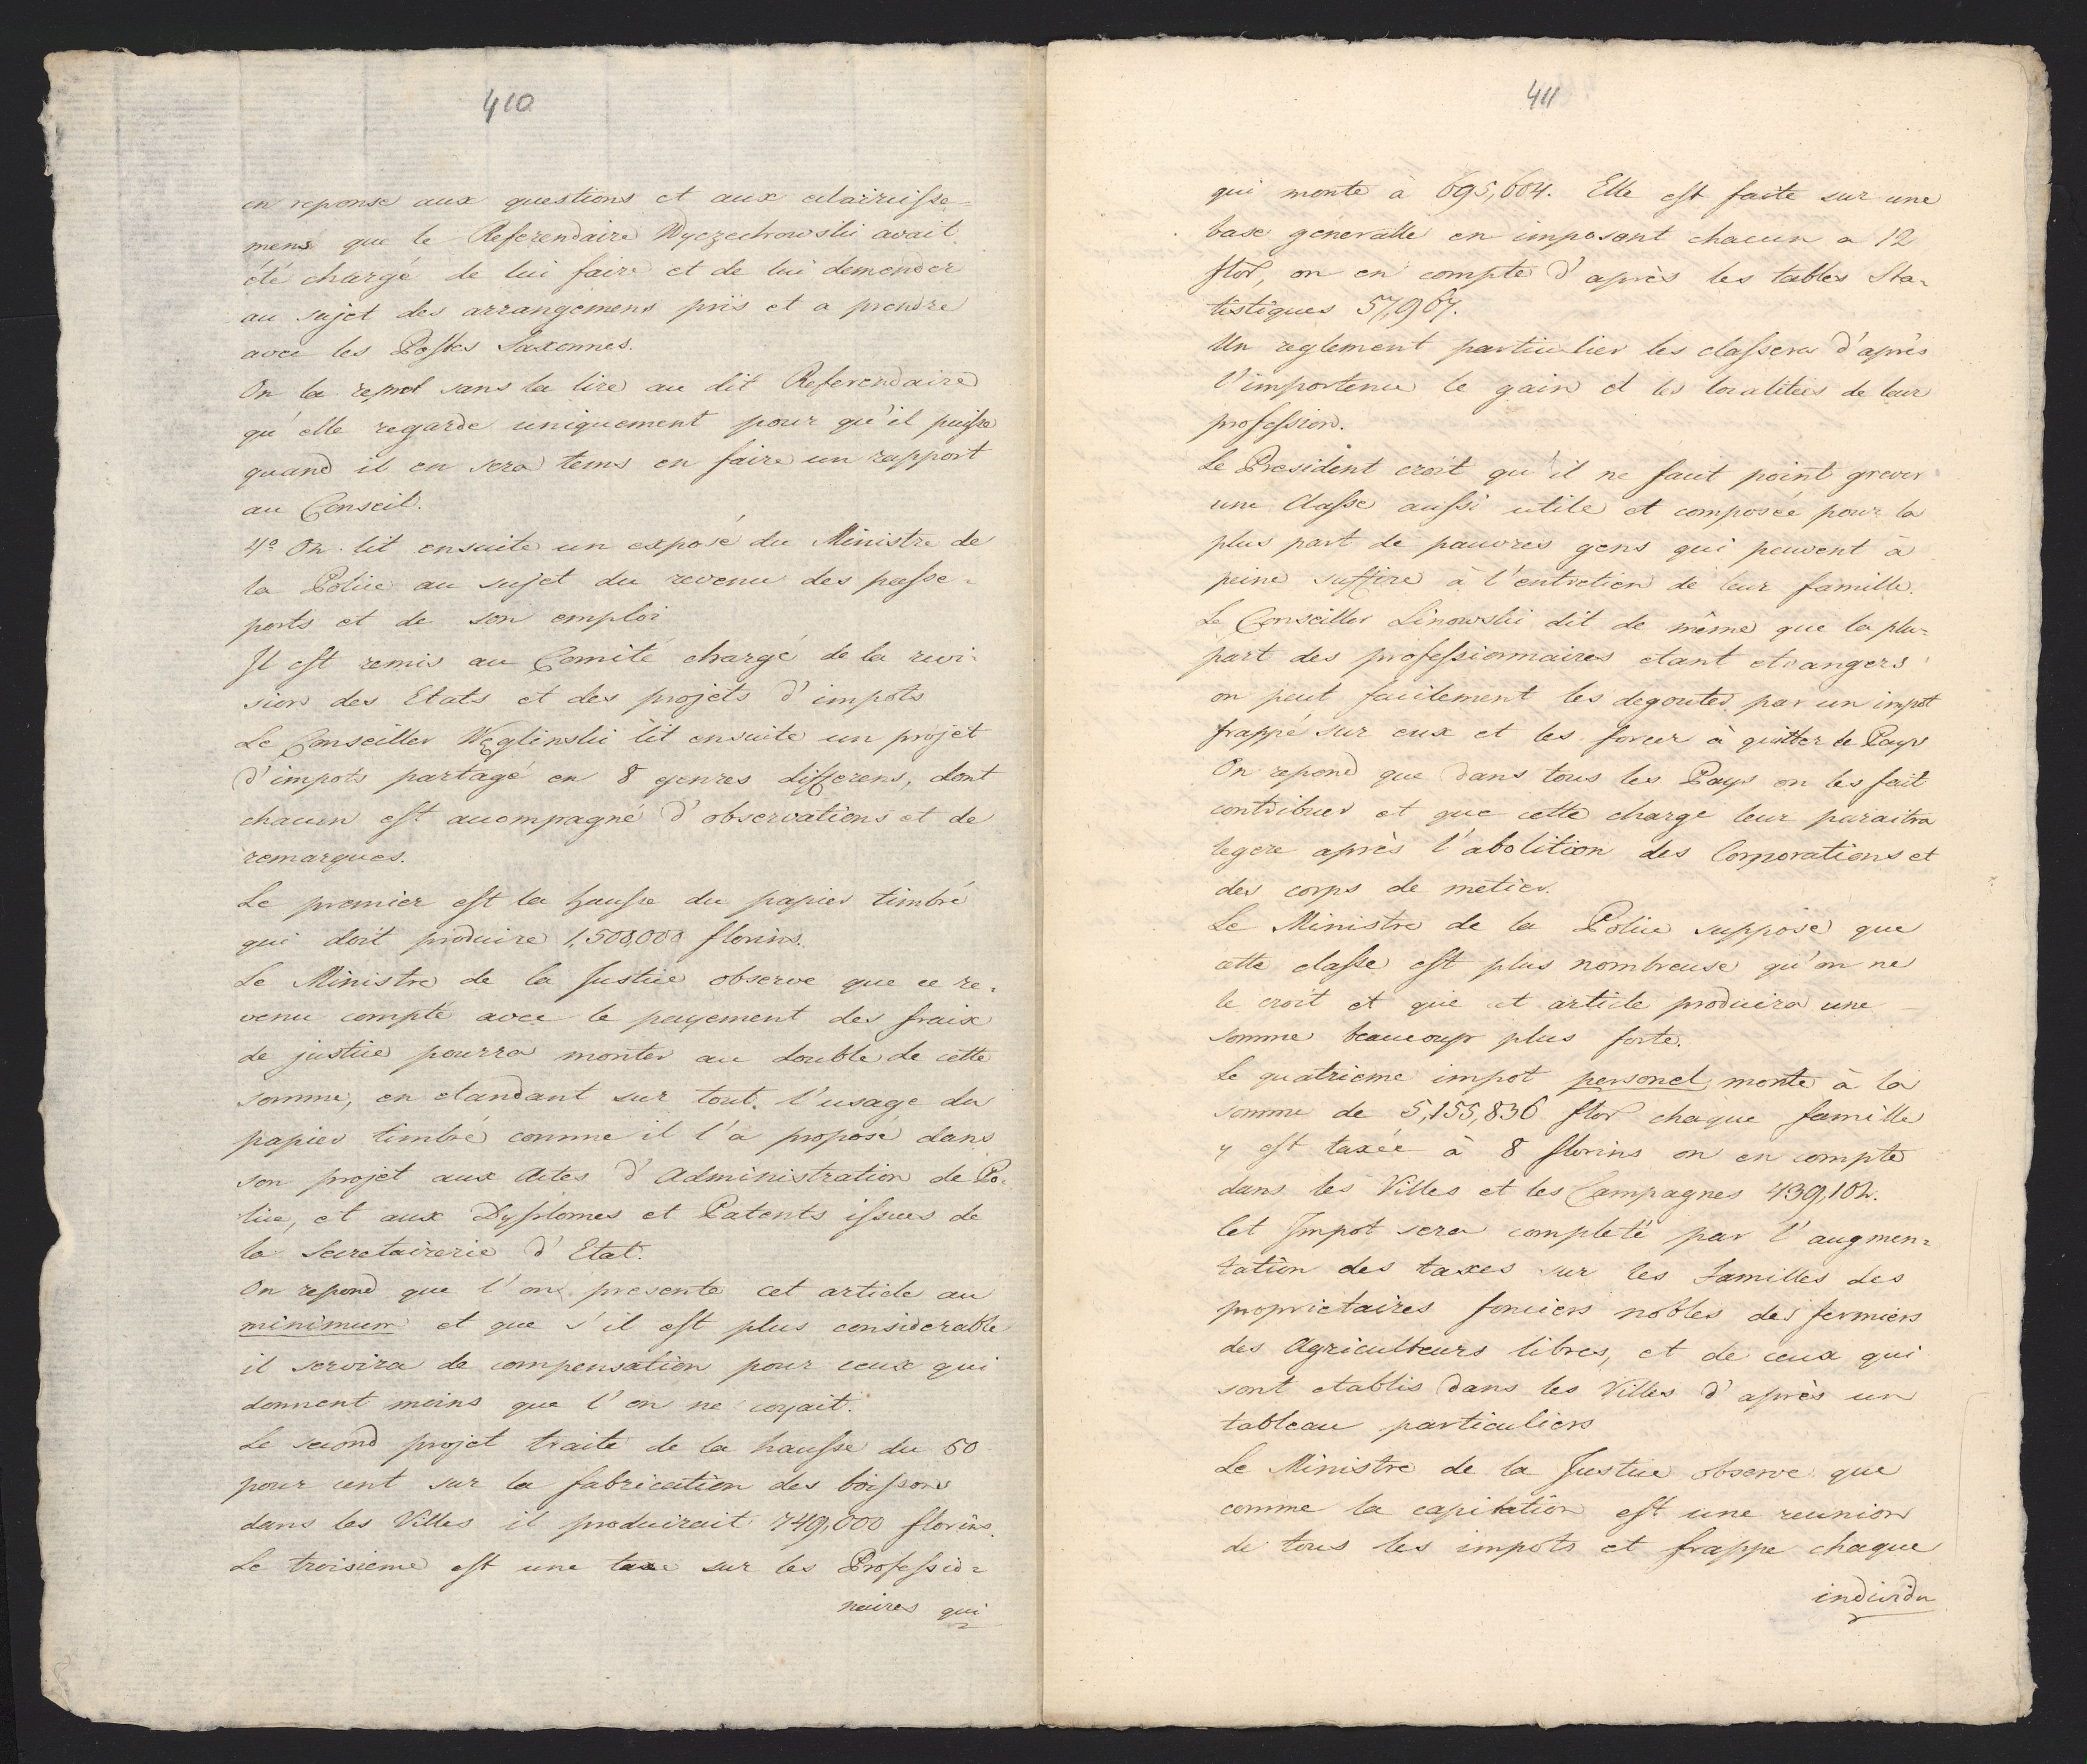 410
en reponse aux questions et aux eclairrisse=
mens que le Referendaire Wyczechowski avait
été chargé de lui faire et de lui demender
au sujet des arrangemens priis et a prendre
avec les Postes Saxonnes.
On la remet sans la lire au dit Referendaire
qu'elle regarde uniquement pour qu'il puisse
quand il en sera tems en faire un rapport
au Conseil.
4º On lit ensuite un exposé du Ministre de
la Police au sujet du revenu des passe=
ports et de son emploi
Il est remis au Comité chargé de la revi=
sion des Etats et des projets d'impots
Le Conseiller Węglinski lit ensuite un projet
d'impots partagé en 8 genres differens, dont
chacun est accompagné d'observations et de
remarques.
Le premier est la hausse du papier timbré
qui doit produire 1,500,000 florins.
Le Ministre de la Justice observe que ce re=
venu compté avec le payement des fraix
de justice pourra monter au double de cette
somme, en etandant sur tout l'usage du
papier timbré comme il l'a proposé dans
son projet aux Actes d'Administration de Po=
lice, et aux Dyplomes et Patents issues de
la Secretairerie d'Etat.
On repond que l'on presente cet article au
minimum et que s'il est plus considerable
il servira de compensation pour ceux qui
donnent moins que l'on ne coyait.
Le second projet traite de la hausse du 50
pour cent sur la fabrication des boissons
dans les Villes il produirait 749,000 florins.
Le troisieme est une taxe sur les Professio=
naires qui
411
qui monte à 695,604. Elle est faite sur une
base generalle en imposant chacun a 12
flor, on en compte d'après les tables Sta=
tistiques 57,967.
Un reglement particulier les classera d'après
l'importence le gain et les localitées de leur
profession.
Le President croit qu'il ne faut point grever
une Classe aussi utile et composée pour la
plus part de pauvres gens qui peuvent à
peine suffire à l'entretien de leur famille.
Le Conseiller Linowski dit de même que la plu=
part des professionnaires etant etrangers
on peut facilement les degouter par un impot
frappé sur eux et les forcer à quitter le Pays
On repond que dans tous les Pays on les fait
contribuer et que cette charge leur paraitra
legere après l'abolition des Corporations et
des corps de metier.
Le Ministre de la Police suppose que
cette classe est plus nombreuse qu'on ne
le croit et que cet article produira une
somme beaucoup plus forte.
Le quatrieme impot personel monte à la
somme de 5,155,836 flor chaque famille
y est taxée à 8 florins on en compte
dans les Villes et les Campagnes 439,102.
Cet Impot sera completé par l'augmen=
tation des taxes sur les familles des
proprietaires fonciers nobles des fermiers
des Agriculteurs libres, et de ceux qui
sont etablis dans les Villes d'après un
tableau particuliers
Le Ministre de la Justice observe que
comme la capitation est une reunion
de tous les impots et frappe chaque
individu